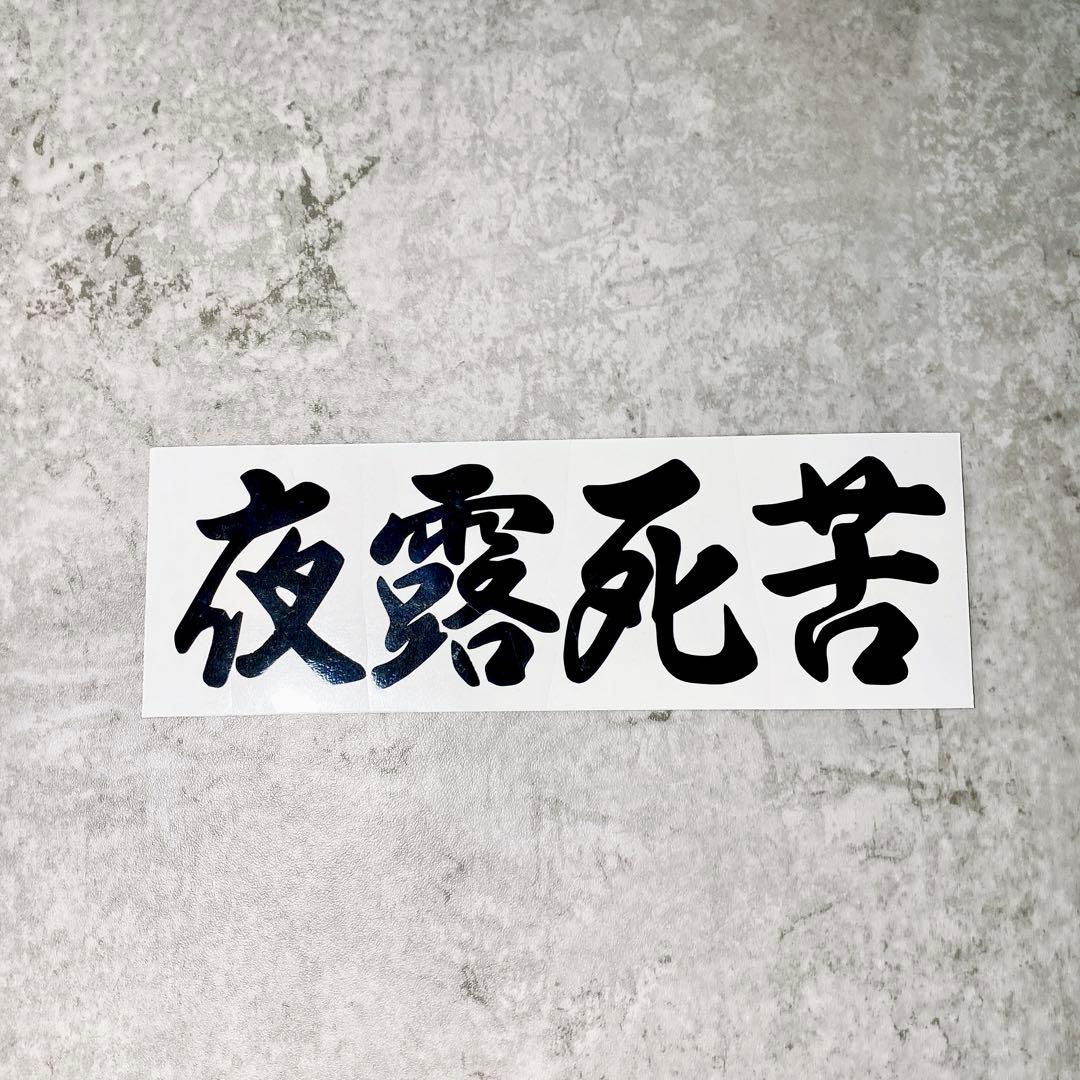 夜露死苦